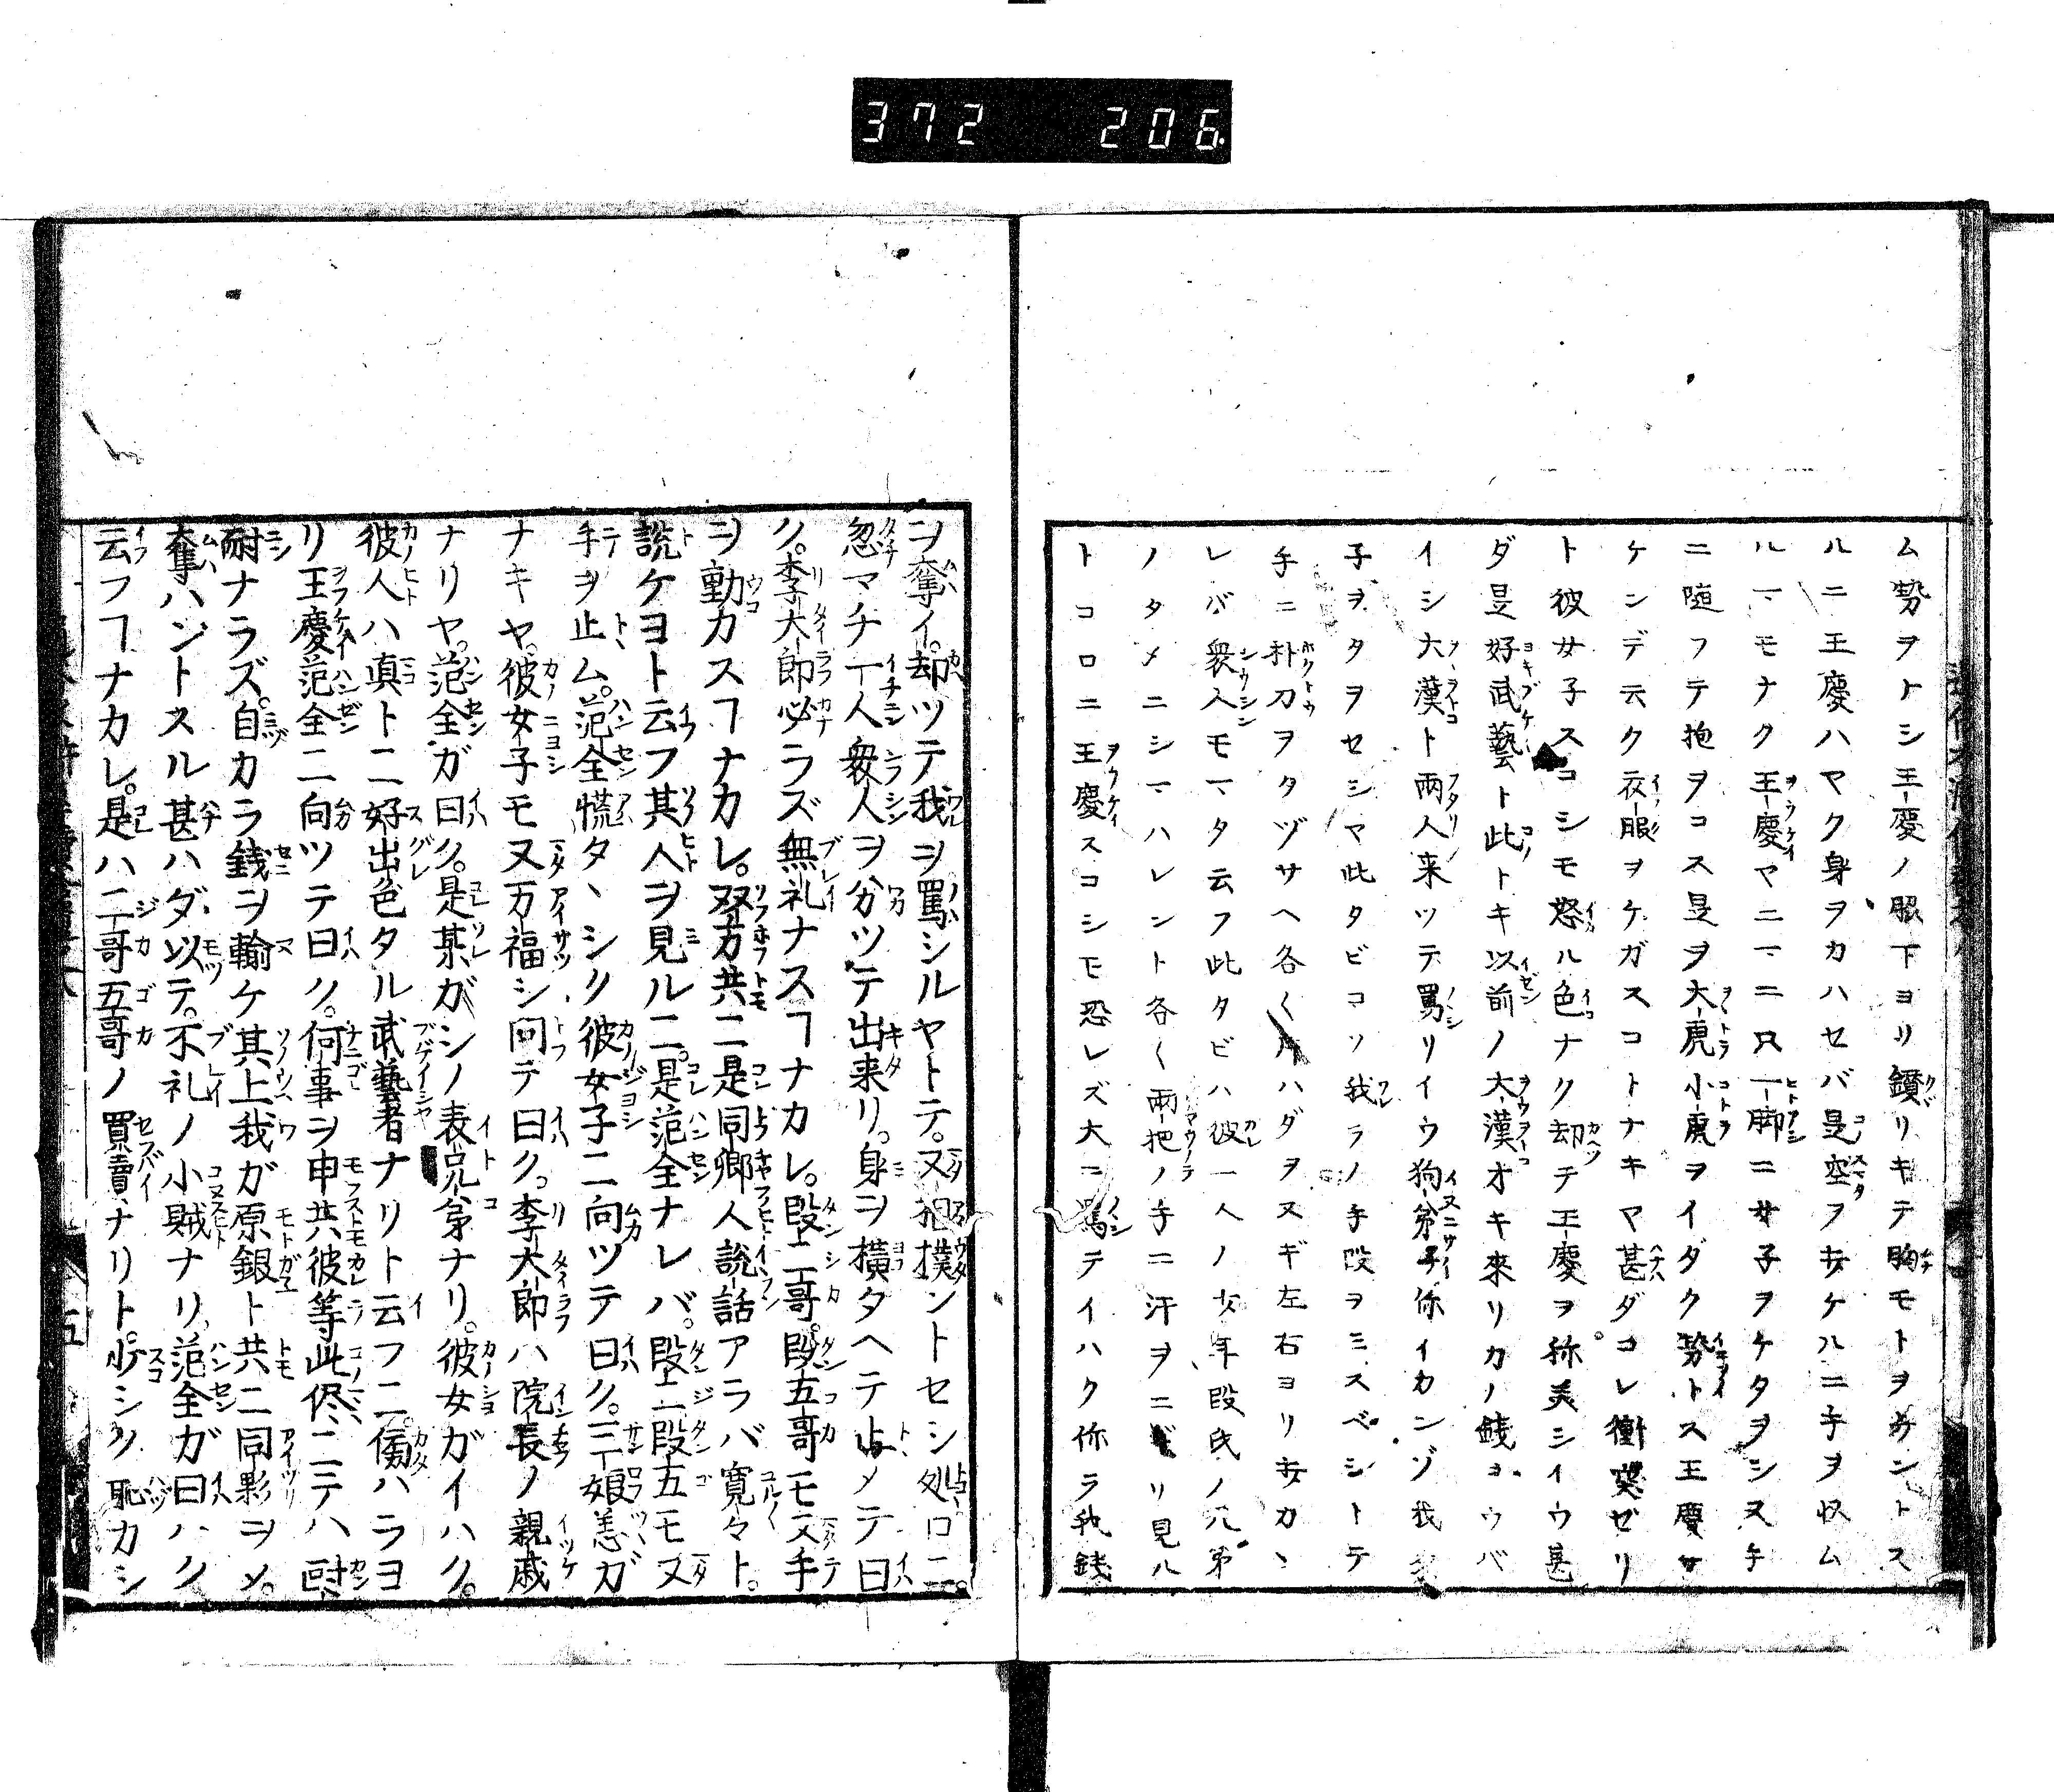 372 206
ム勢ヲトシ王慶ノ眼下ヨリ鑚リキテ胸モトヲ劣ントス
ルニ王慶ハヤク身ヲカハセバ是空ヲ劣ケルニ手ヲ收ム
ルヿモナク王慶マニヿニ只一脚ニ女子ヲケタヲシヌ手
ニ隨フテ抱ヲコス是ヲ大虎小虎ヲイダク勢トス王慶サ
ケンデ云ク衣服ヲケガスコトナキマ甚ダコレ衝突ゼリ
ト彼女子スコシモ怒ル色ナク却テ王慶ヲ称美シイウ甚
ダ是好武藝ト此トキ以前ノ大漢オキ來リカノ錢ヨウバ
イシ大漢ト兩人来ツテ罵リイウ狗弟子你イカンゾ我
子ヲタヲセシマ此タビコソ我ラノ手段ヲミスベシトテ
手ニ朴刀ヲタヅサヘ各〱ハダヲヌギ左右ヨリ劣カヽ
レバ衆人モマタ云フ此タビハ彼一人ノ少年段氏ノ兄弟
ノタメニシマハレント各〱兩把ノ手ニ汗ヲニギリ見ル
トコロニ王慶スコシモ恐レズ大ニ罵テイハク你ラ我錢
ヲ奪イ。却ツテ我ヲ罵シルヤトテ。又相撲ントセシ処ロニ。
忽マチ一人衆人ヲ分ツテ出来リ。身ヲ橫タヘテ止メテ曰
ク。李大郎必ラズ無礼ナスヿナカレ。段二哥。段五哥モ又手
ヲ動カスヿナカレ。双方共ニ是同郷人説話アラバ寛々ト。
説ケヨト云フ其人ヲ見ルニ。是范全ナレバ。段二段五モ又
手ヲ止ム。范全慌タヽシク彼女子ニ向ツテ曰ク。三娘恙ガ
ナキヤ。彼女子モ又万福シ问テ曰ク。李大郎ハ院長ノ親戚
ナリヤ。范全ガ曰ク。是某ガシノ表兄弟ナリ。彼女ガイハク。
彼人ハ真トニ好出色タル武藝者ナリト云フニ。傍ハラヨ
リ王慶范全ニ向ツテ曰ク。何事ヲ申共彼等此侭ニテハ
耐ナラズ。自カラ錢ヲ輸ケ其上我ガ原銀ト共ニ同夥ヲメ。
奪ハントスル甚ハダ以テ。不礼ノ小賊ナリ。范全ガ曰ハク
云フヿナカレ。是ハ二哥五哥ノ買賣ナリト。少シク恥カシ
五